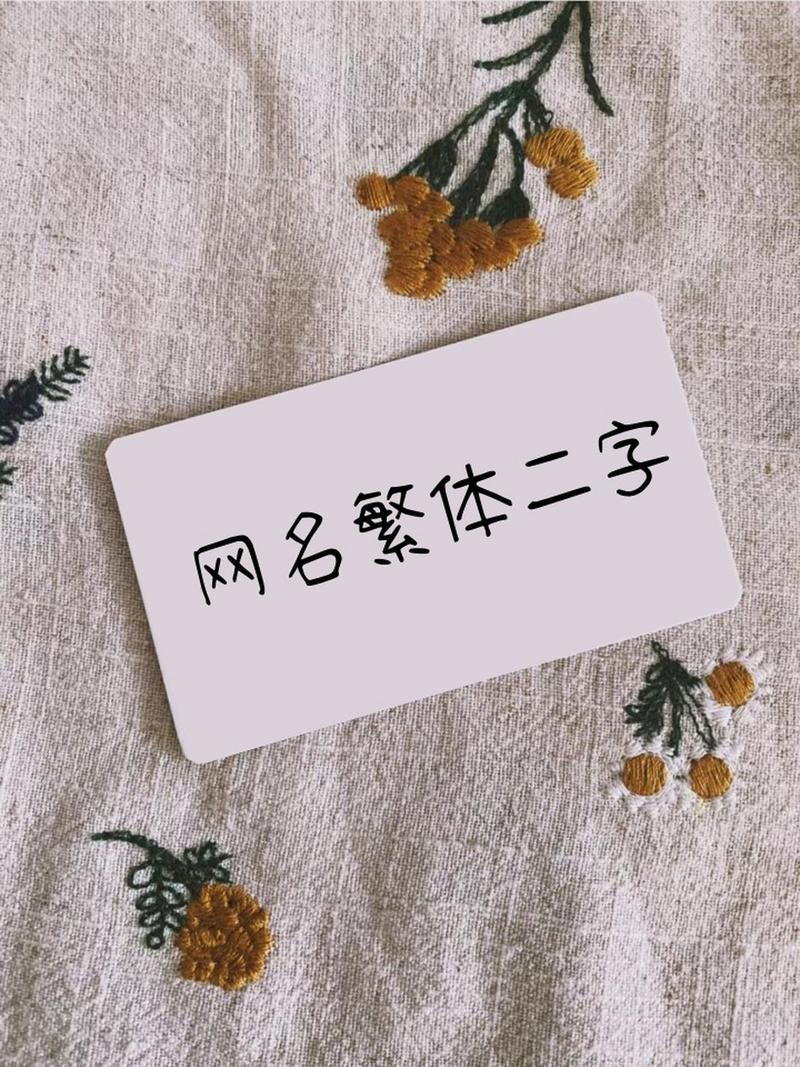 网名繁体二字